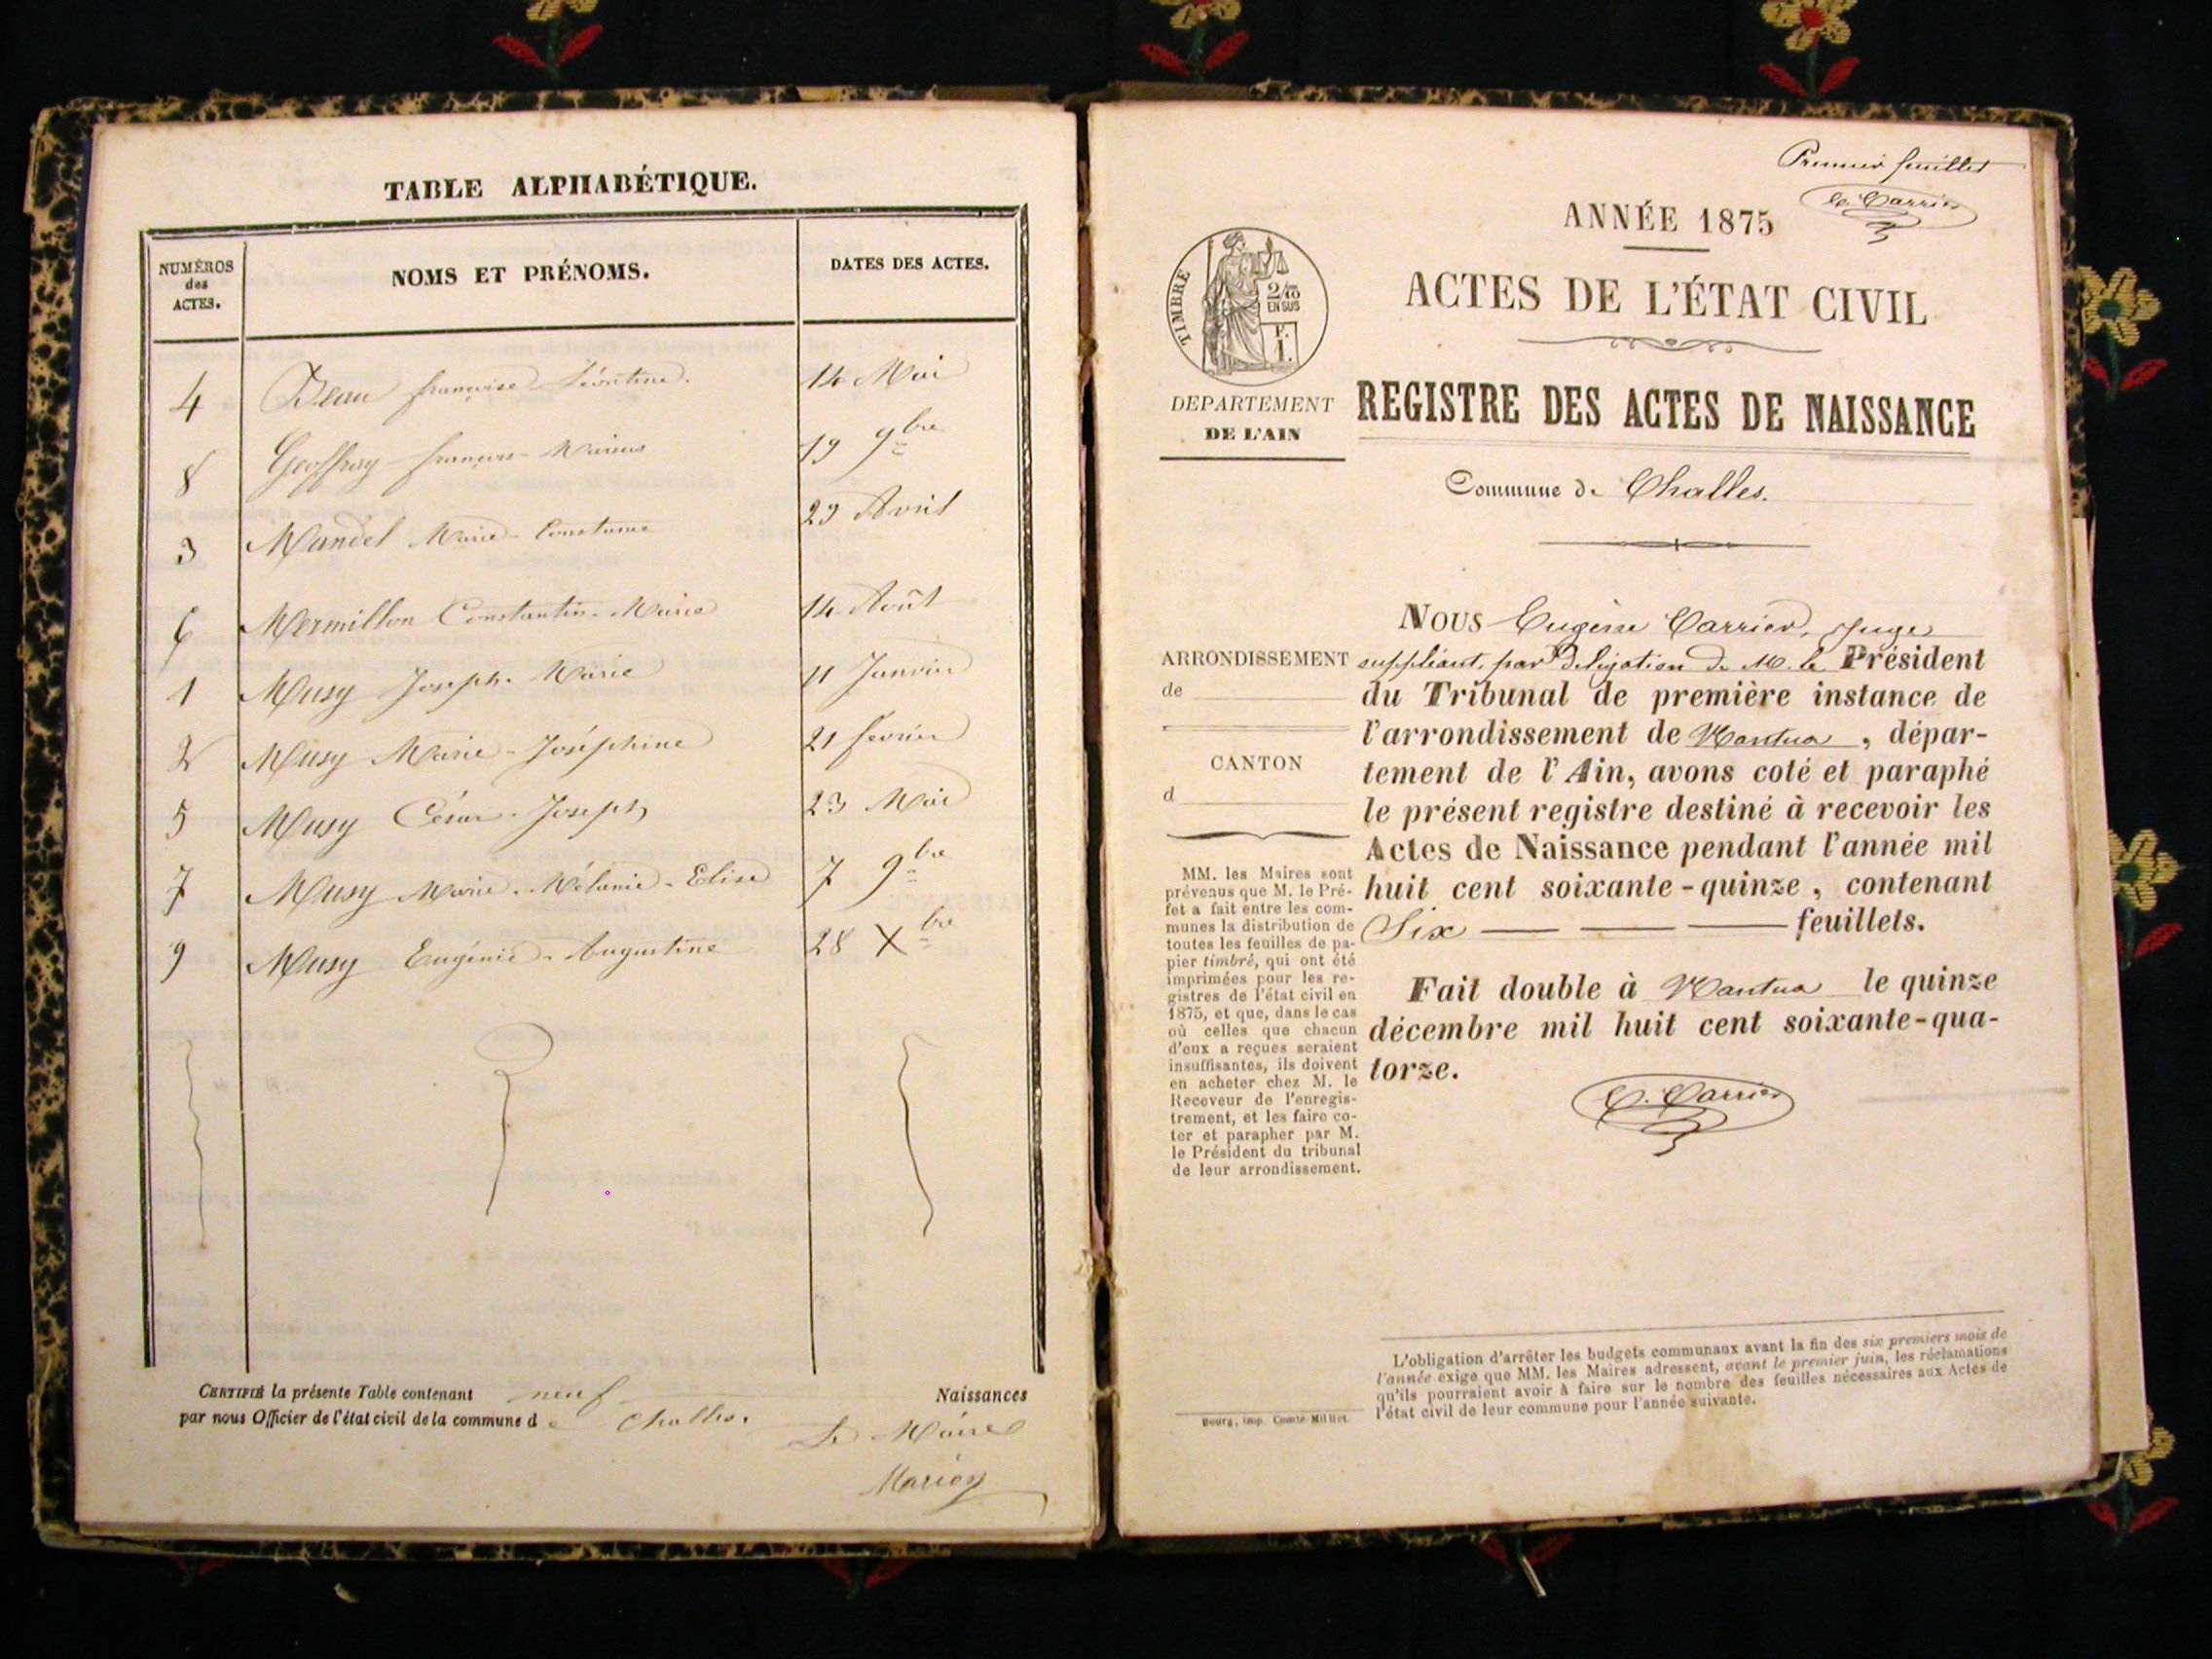 TABLE ALPHABÉTIQUE.
NUMÉROS des ACTES. NOMS ET PRÉNOMS. DATES DES ACTES.
4 Beau françoise Léontine. 14 Mai
8 Geoffray françois-Marius 19 9bre
3 Mandel Marie-Constance 29 Avril
6 Mermillon Constantin-Marie 14 Août
1 Musy Joseph-Marie 11 Janvier
2 Musy Marie-Joséphine 21 février
5 Musy César-Joseph 23 Mai
7 Musy Marie-Mélanie-Elise 7 9bre
9 Musy Eugénie-Augustine 28 Xbre
CERTIFIÉ la présente Table contenant neuf Naissances
par nous Officier de l'état civil de la commune de Challes.
Le Maire
Premier feuillet
E. Carrier
ANNÉE 1875
ACTES DE L'ÉTAT CIVIL
TIMBRE
2/10 EN SUS
F. 1.
DEPARTEMENT
DE L'AIN
REGISTRE DES ACTES DE NAISSANCE
Commune de Challes.
ARRONDISSEMENT
de
CANTON
d
MM. les Maires sont
prévenus que M. le Pré-
fet a fait entre les com-
munes la distribution de
toutes les feuilles de pa-
pier timbré, qui ont été
imprimées pour les re-
gistres de l'état civil en
1875, et que, dans le cas
où celles que chacun
d'eux a reçues seraient
insuffisantes, ils doivent
en acheter chez M. le
Receveur de l'enregis-
trement, et les faire co-
ter et parapher par M.
le Président du tribunal
de leur arrondissement.
NOUS Eugène Carrier, Juge
suppléant, par Délégation de M. le Président
du Tribunal de première instance de
l'arrondissement de Nantua, dépar-
tement de l'Ain, avons coté et paraphé
le présent registre destiné à recevoir les
Actes de Naissance pendant l'année mil
huit cent soixante-quinze, contenant
Six feuillets.
Fait double à Nantua le quinze
décembre mil huit cent soixante-qua-
torze.
E. Carrier
L'obligation d'arrêter les budgets communaux avant la fin des six premiers mois de
l'année exige que MM. les Maires adressent, avant le premier juin, les réclamations
qu'ils pourraient avoir à faire sur le nombre des feuilles nécessaires aux Actes de
l'état civil de leur commune pour l'année suivante.
Bourg, imp. Comte-Milliet.